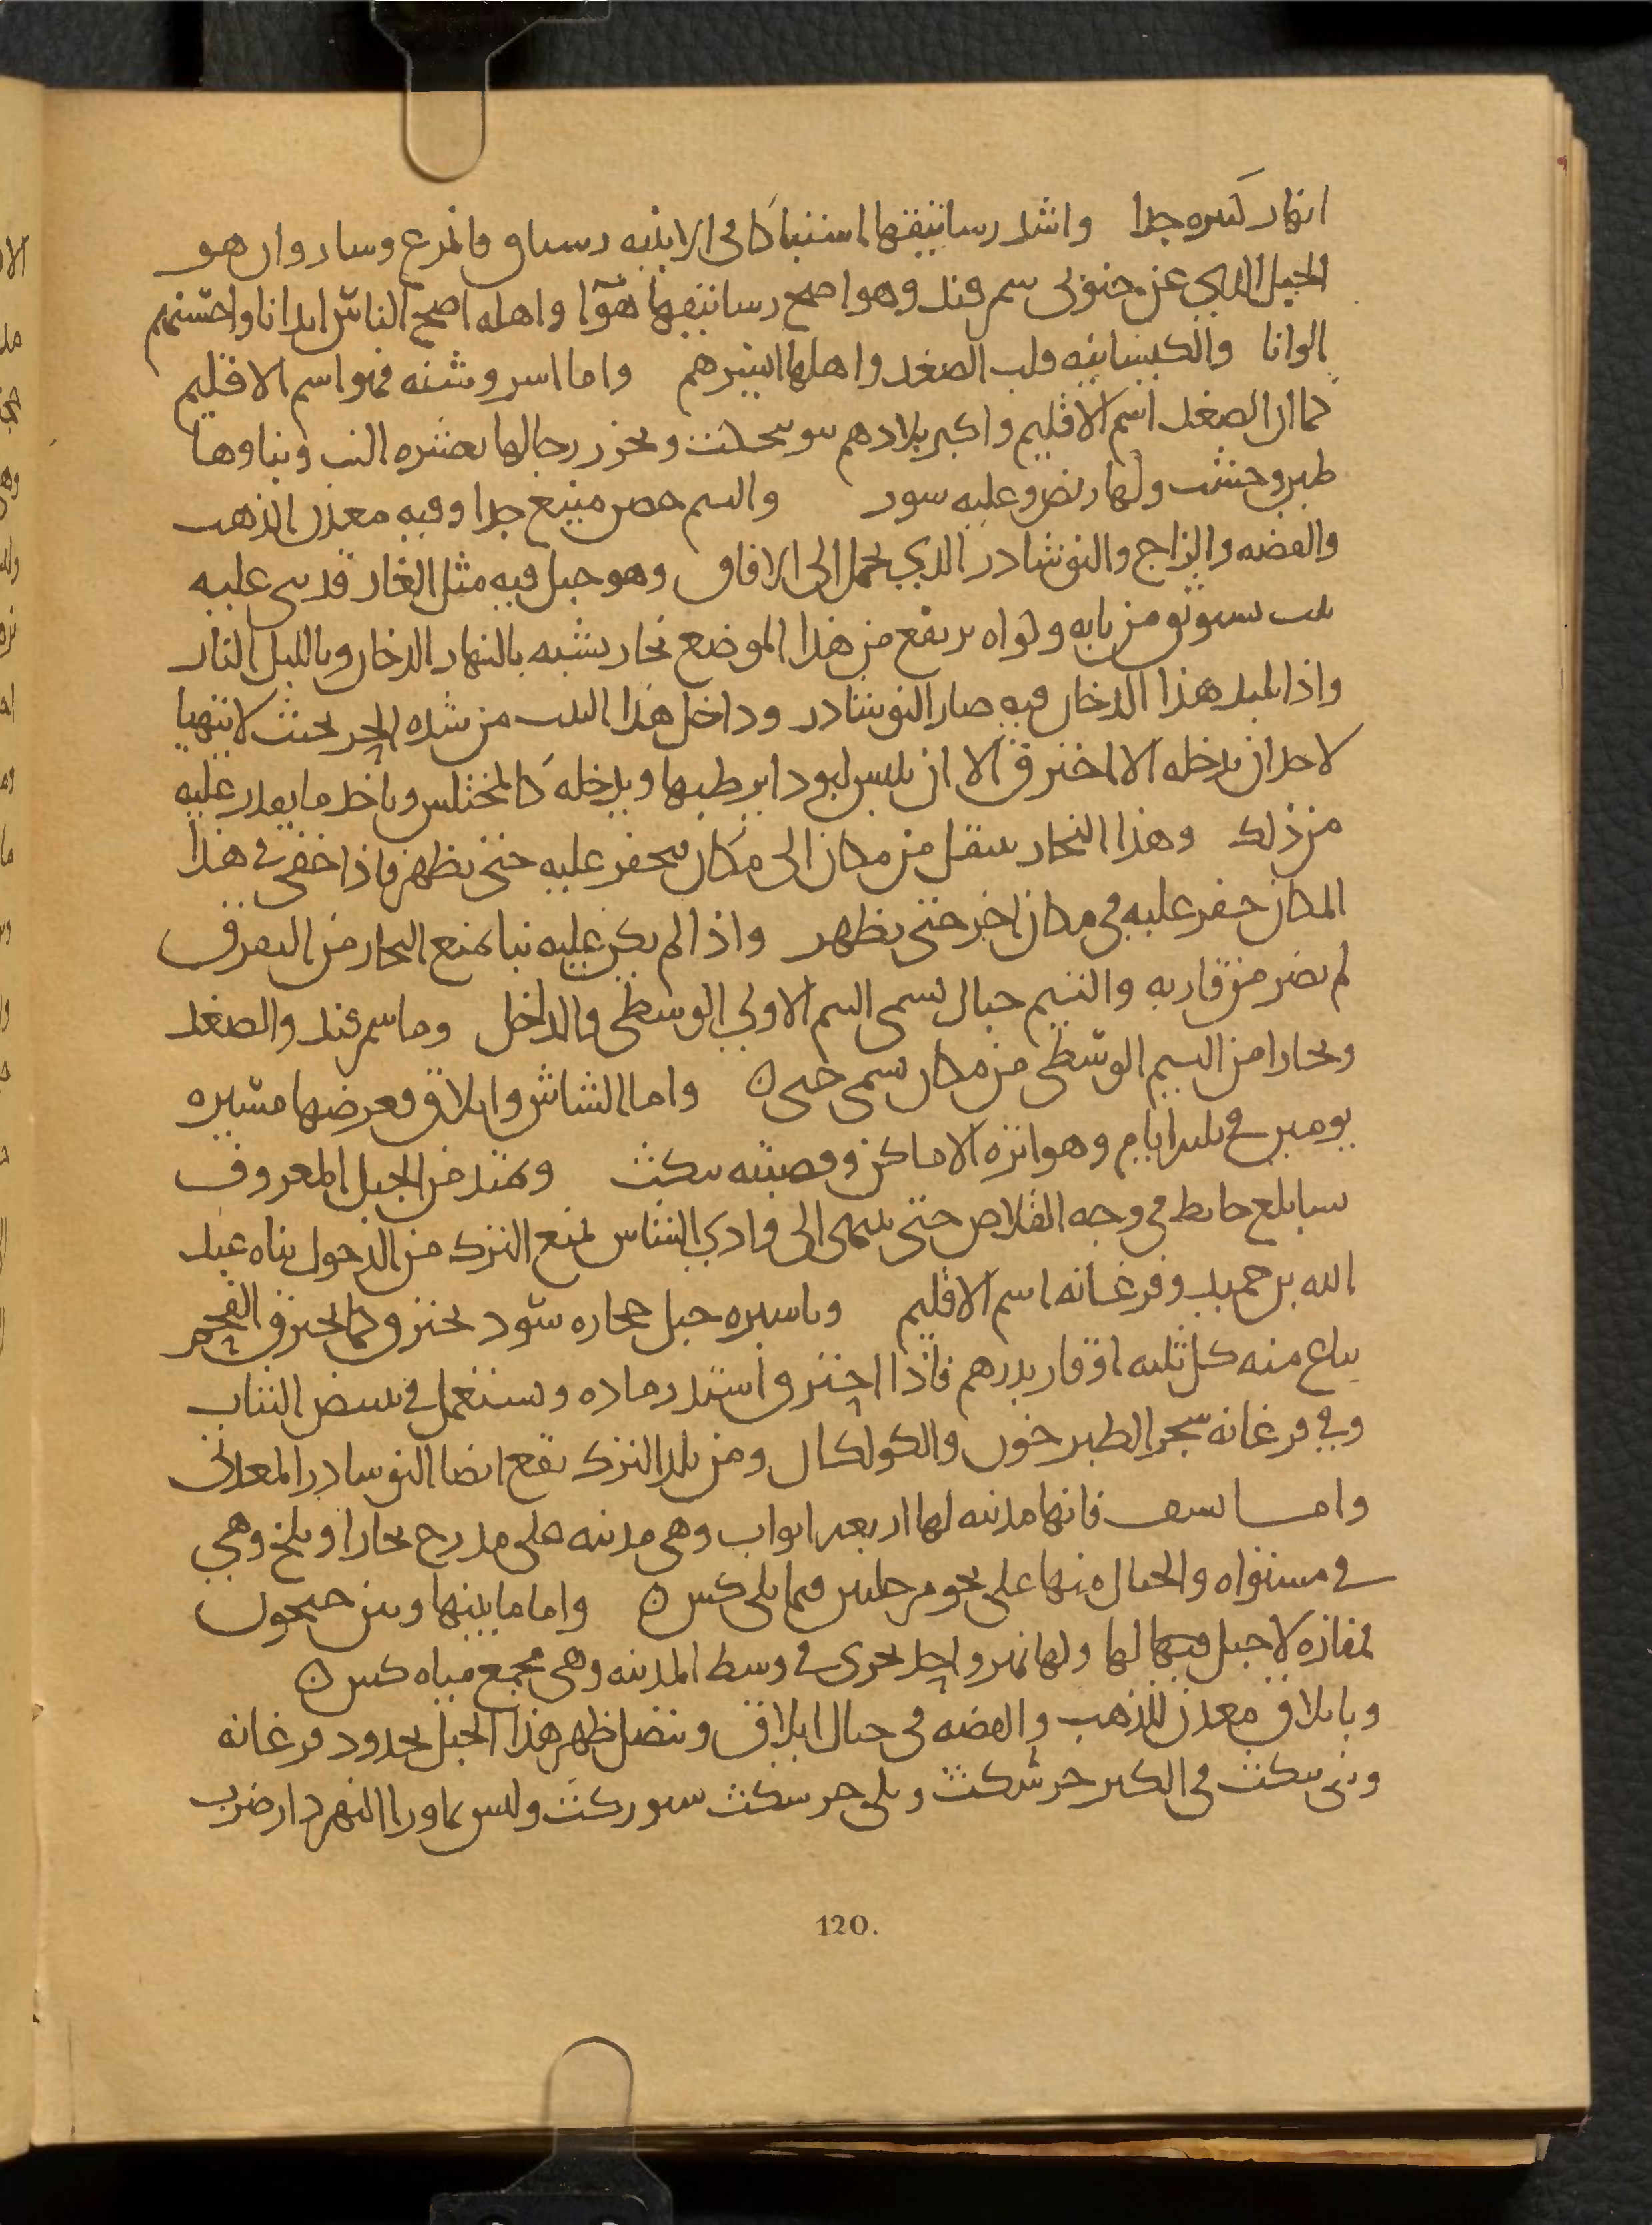 انهار كثيره جدا واشد رساتيقها اشتباكا في الابنيه رستاق والمرع وساروان هو
الجبل الذي عن جنوبي سمرقند وهو اصح رساتيقها هوا واهله اصح الناس ابدانا واحسنهم
الوانا والكيشانيه قلب الصغد واهلها ايسرهم واما اسروشنه فهو اسم الاقليم
كما ان الصغد اسم الاقليم واكبر بلادهم بنوسحكت وبحزر رجالها بعشره الف وبناوها
طين وخشب ولها ربض وعليه سور والبتم حصن منيع جدا وفيه معدن الذهب
والفضه والزاج والنوشادر الذي يحمل الى الافاق وهو جبل فيه مثل الغار قد بني عليه
بيت يستوثق من بابه وكواه يرتفع من هذا الموضع بخار يشبه بالنهار الدخان وبالليل النار
واذا تلبد هذا الدخان فيه صار النوشادر وداخل هذا البيت من شده الحر بحيث لا يتهيا
لاحد ان يدخله الا احترق الا ان يلبس لبودا يرطبها ويدخله كالمختلس وياخذ ما يقدر عليه
من ذلك وهذا البخار ينتقل من مكان الى مكان فيحفر عليه حتى يظهر فاذا خفي في هذا
المكان حفر عليه في مكان اخر حتى يظهر واذا لم يكن عليه بنا يمنع البخار من التفرق
لم يضر من قاربه والبتم جبال تسمى البتم الاولى الوسطى والداخل وما سمرقند والصغد
وبخارا من البتم الوسطى من مكان يسمى جى ن واما الشاش وايلاق فعرضها مسيره
يومين في ثلثه ايام وهو انزه الاماكن وقصبته بنكث ويمتد من الجبل المعروف
بسابلع حايط في وجه القلاص حتى ينتهى الى وادي الشاش لمنع الترك من الدخول بناه عبد
الله بن حميد وفرغانه اسم الاقليم وباسبره جبل حجاره سود تحترق كما يحترق الفحم
يباع منه كل ثلثه اوقار بدرهم فاذا احترق اشتد رماده ويستعمل في تبييض الثياب
وفي فرغانه شجر الطبرخون والكولكان ومن بلد الترك يقع ايضا النوشادر المعدني
واما نسف فانها مدينه لها اربعه ابواب وهي مدينه على مدرج بخارا وبلخ وهي
في مستواه والجبال منها على نحو مرحلتين فيما يلى كش ن واما ما بينها وبين جيحون
لمفازه لا جبل فيها لها ولها نهر واحد يجرى في وسط المدينه وهى مجمع مياه كش ن
وبايلاق معدن للذهب والفضه في جبال ايلاق ويتصل ظهر هذا الجبل بحدود فرغانه
وتلى بنكث في الكبر خرشكث ويلي خرشكث ستوركث وليس بماورا النهر دار ضرب
120.